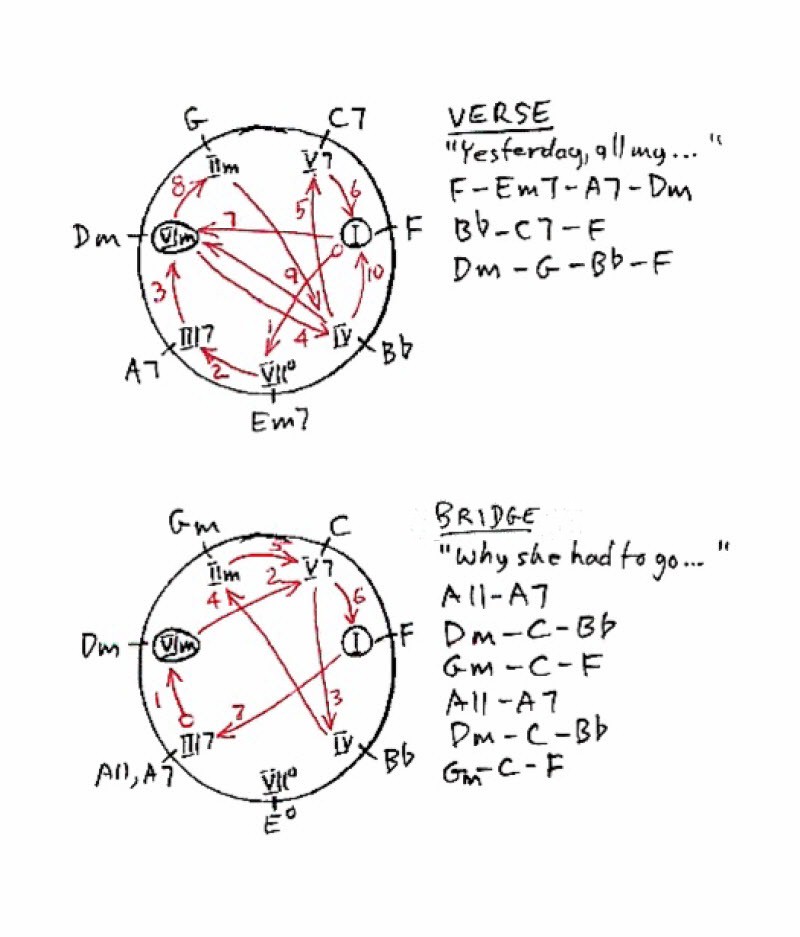 G C7
IIm V7
8 6
5
Dm VIm 7 I F
9 10
3
1 4
A7 III7 2 VII° IV Bb
Em7
VERSE
"Yesterday, all my... "
F-Em7-A7-Dm
Bb-C7-F
Dm-G-Bb-F
Gm C
5
IIm V7
4 2 6
Dm VIm I F
1 7 3
A11, A7 III7 VII° IV Bb
E°
BRIDGE
"Why she had to go... "
A11-A7
Dm-C-Bb
Gm-C-F
A11-A7
Dm-C-Bb
Gm-C-F